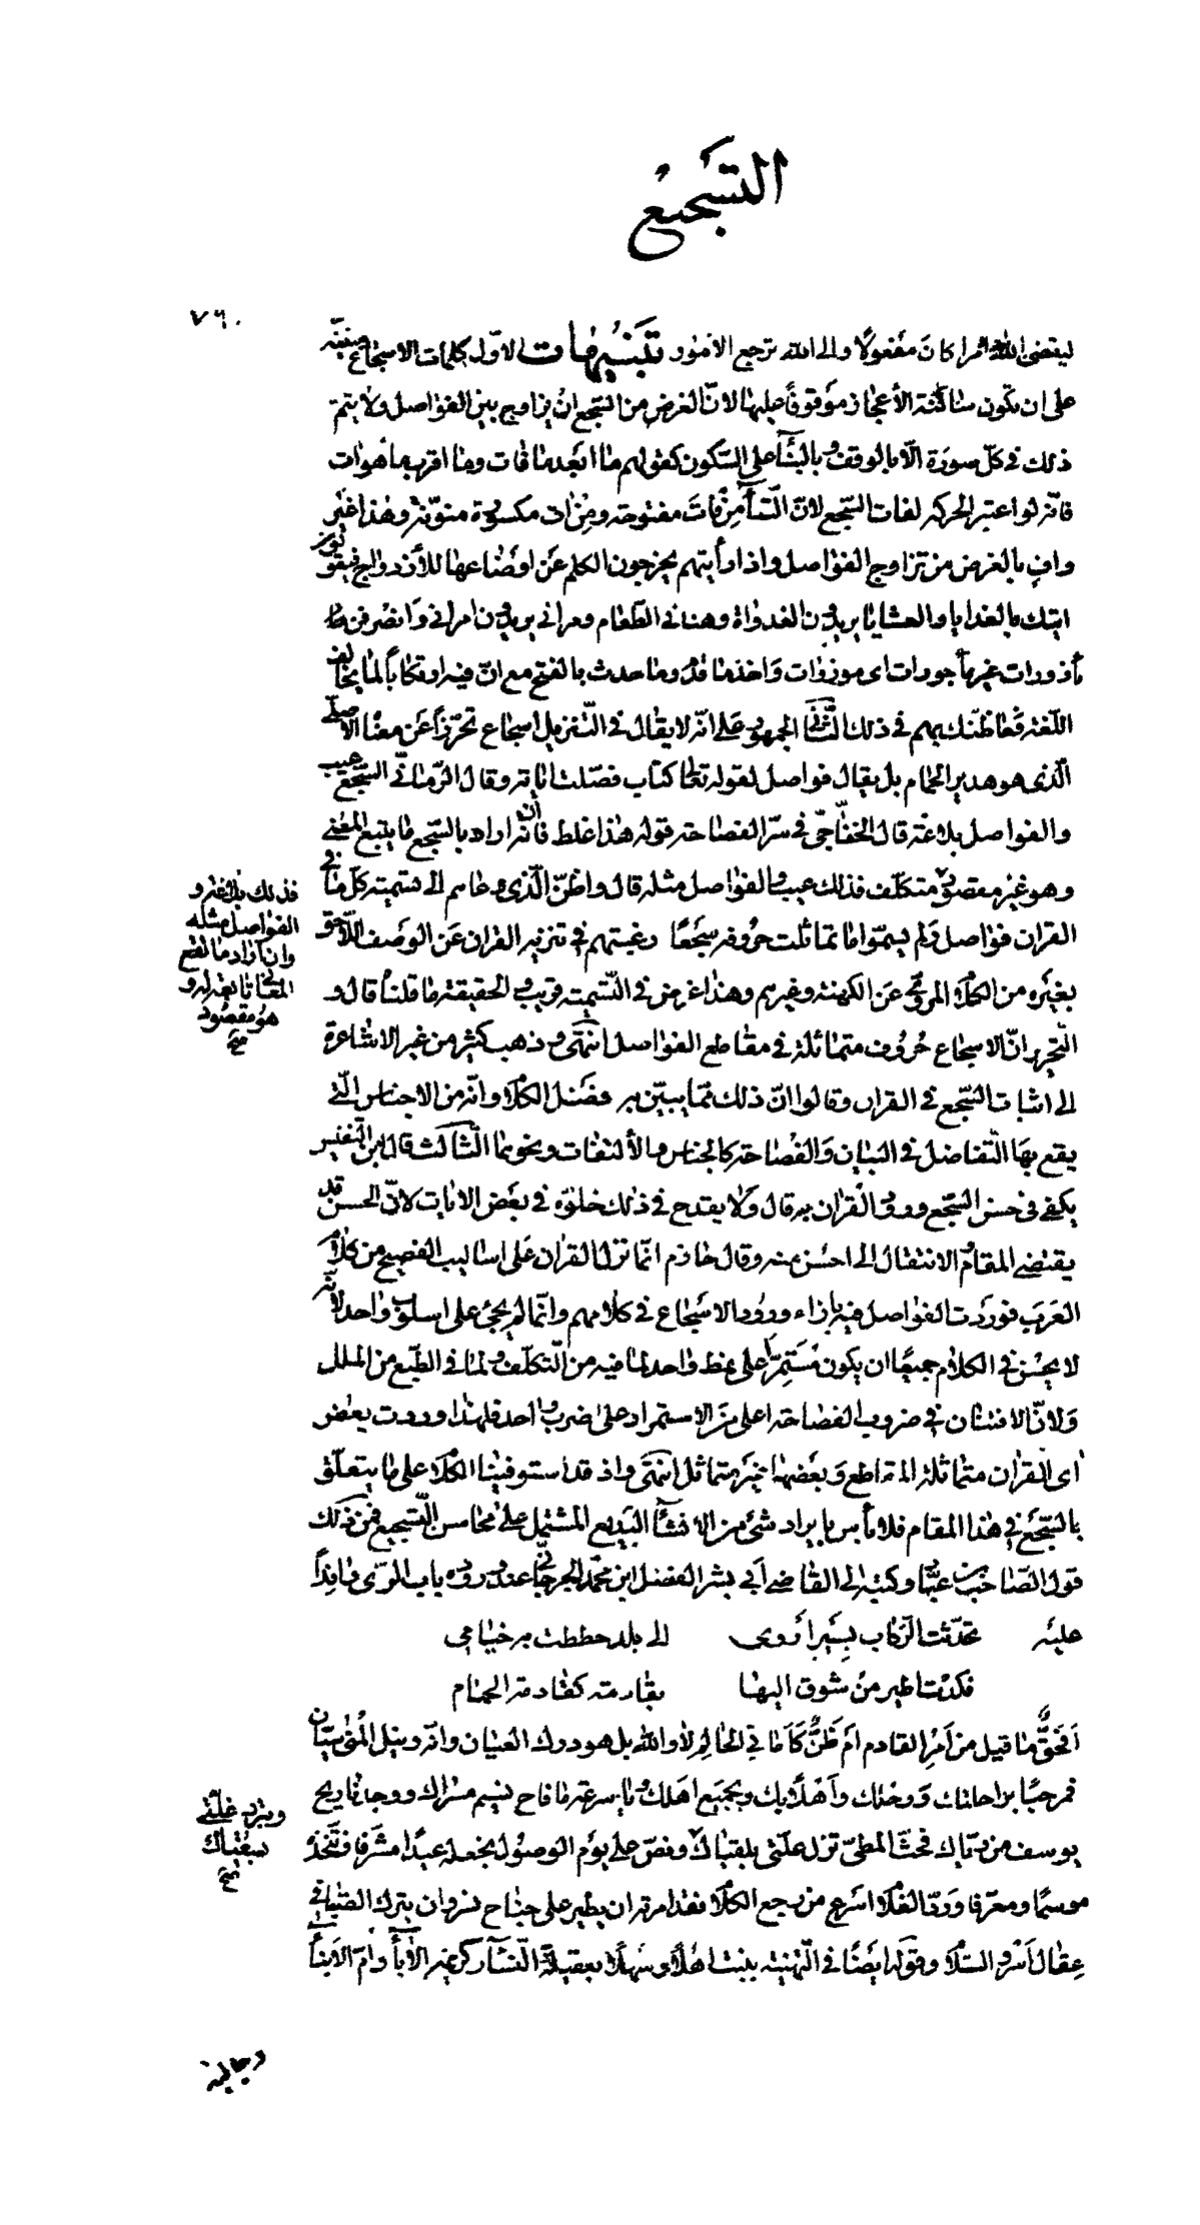 التسجيع
٧٦٠
ليقضي الله امرا كان مفعولا والى الله ترجع الامور تنبيهات الاول كلمات الاسجاع مبنيه
على ان تكون ساكنة الأعجاز موقوفا عليها لانّ الغرض من السّجع ان يزاوج بين الفواصل ولا يتمّ
ذلك في كلّ صورة الّا بالوقف وبالبنآء على السّكون كقولهم ما ابعد ما فات وما اقرب ما هوات
فانّه لو اعتبر الحركه لفات السّجع لانّ التآء من فات مفتوحة ومن ات مكسورة منوّنة وهذا غير
واف بالغرض من تزاوج الفواصل واذا رأيتهم يخرجون الكلم عن اوضاعها للأزدواج فيقولون
اتيتك بالغدايا والعشايا يريدون الغدوات وهناني الطّعام ومراني يريدون امراني وانصرفن ما
مأزورات غير مأجورات اي موزورات واخذ ما قدم وما حدث بالفتح مع انّ فيه ارتكابا لما يخالف
اللّغة فما ظنّك بهم في ذلك الثّاني الجمهور على انّه لا يقال في التّنزيل اسجاع تحرّزا عن معناه الاصلي
الّذي هو هدير الحمام بل يقال فواصل لقوله تعالى كتاب فصّلت اياته وقال الرّمانّي السّجع عيب
والفواصل بلاغة قال الخفّاجي في سرّ الفصاحة قوله هذا غلط فانّه ان اراد بالسّجع ما يتبع المعنى
وهو غير مقصود متكلّف فذلك عيب والفواصل مثله قال واظنّ الّذي دعاهم الى تسمية كلّ ما في
القران فواصل ولم يسمّوا ما تماثلت حروفه سجعا رغبتهم في تنزيه القران عن الوصف اللّاحق
بغيره من الكلام المرويّ عن الكهنة وغيرهم وهذا غرض في التّسمية قريب والحقيقة ما قلناه قال و
التّحرير انّ الاسجاع حروف متماثلة في مقاطع الفواصل انتهى وذهب كثير من غير الاشاعرة
الى اثبات السّجع في القران وقالوا انّ ذلك ممّا يبيّن به فضل الكلام وانّه من الاجناس الّتي
يقع بها التّفاضل في البيان والفصاحة كالجناس والألتفات ونحوهما الثّالث قال ابن النّفيس
يكفي في حسن السّجع ورود القران به قال ولا يقدح في ذلك خلوّه في بعض الايات لانّ الحسن قد
يقتضي المقام الانتقال الى احسن منه وقال حازم انّما نزل القران على اساليب الفصيح من كلام
العرب فوردت الفواصل فيه بازاء ورود الاسجاع في كلامهم وانّما لم يجئ على اسلوب واحد لانّه
لا يحسن في الكلام جميعا ان يكون مستمرّا على نمط واحد لما فيه من التّكلّف ولما في الطّبع من الملل
ولانّ الافتنان في ضروب الفصاحة اعلى من الاستمرار على ضرب واحد فلهذا وردت بعض
اي القران متماثلة المقاطع وبعضها غير متماثل انتهى واذ قد استوفينا الكلام على ما يتعلّق
بالسّجع في هذا المقام فلا بأس بايراد شئ من الانشآء البديع المشتمل على محاسن التّسجيع فمن ذلك
قول الصّاحب بن عبّاد وكتبه الى القاضي أبي بشر الفضل ابن محمّد الجرجانيّ عند وروده باب الري وافدا
عليه تحدّثت الرّكاب بسير أروى الى بلد حططت به خيامي
فكدت اطير من شوق اليها بقادمة كقادمة الحمام
افحقّ ما قيل من أمر القادم ام ظنّ كأماني الحالم لا والله بل هو درك العيان وانّه ونيل المنى سيّان
فمرحبا براحلتك ورحلك وأهلا بك وبجميع اهلك ويا سرعة ما فاح نسيم مسراك ووجدنا ريح
يوسف من ريّاك فحثّ المطيّ تزل علّتي بلقياك ونصّ على يوم الوصول نجعله عيدا مشرّفا ونتّخذه
موسما ومعرّفا وردّ الغلام اسرع من رجع الكلام فقد امرته ان يطير على جناح نسر وان يترك الصّبا في
عقال اسر والسّلام وقوله ايضا في التّهنية ببنت اهلا وسهلا بعقيلة النّسآء كريمة الأبآء وامّ الابنآء
فذلك بلاغة و
الفواصل مثله
وان اراد ما تقع
المعاني تابعة له و
هو مقصود
صح
وتبرد غلّتي
بسقياك
صح
وجالبة